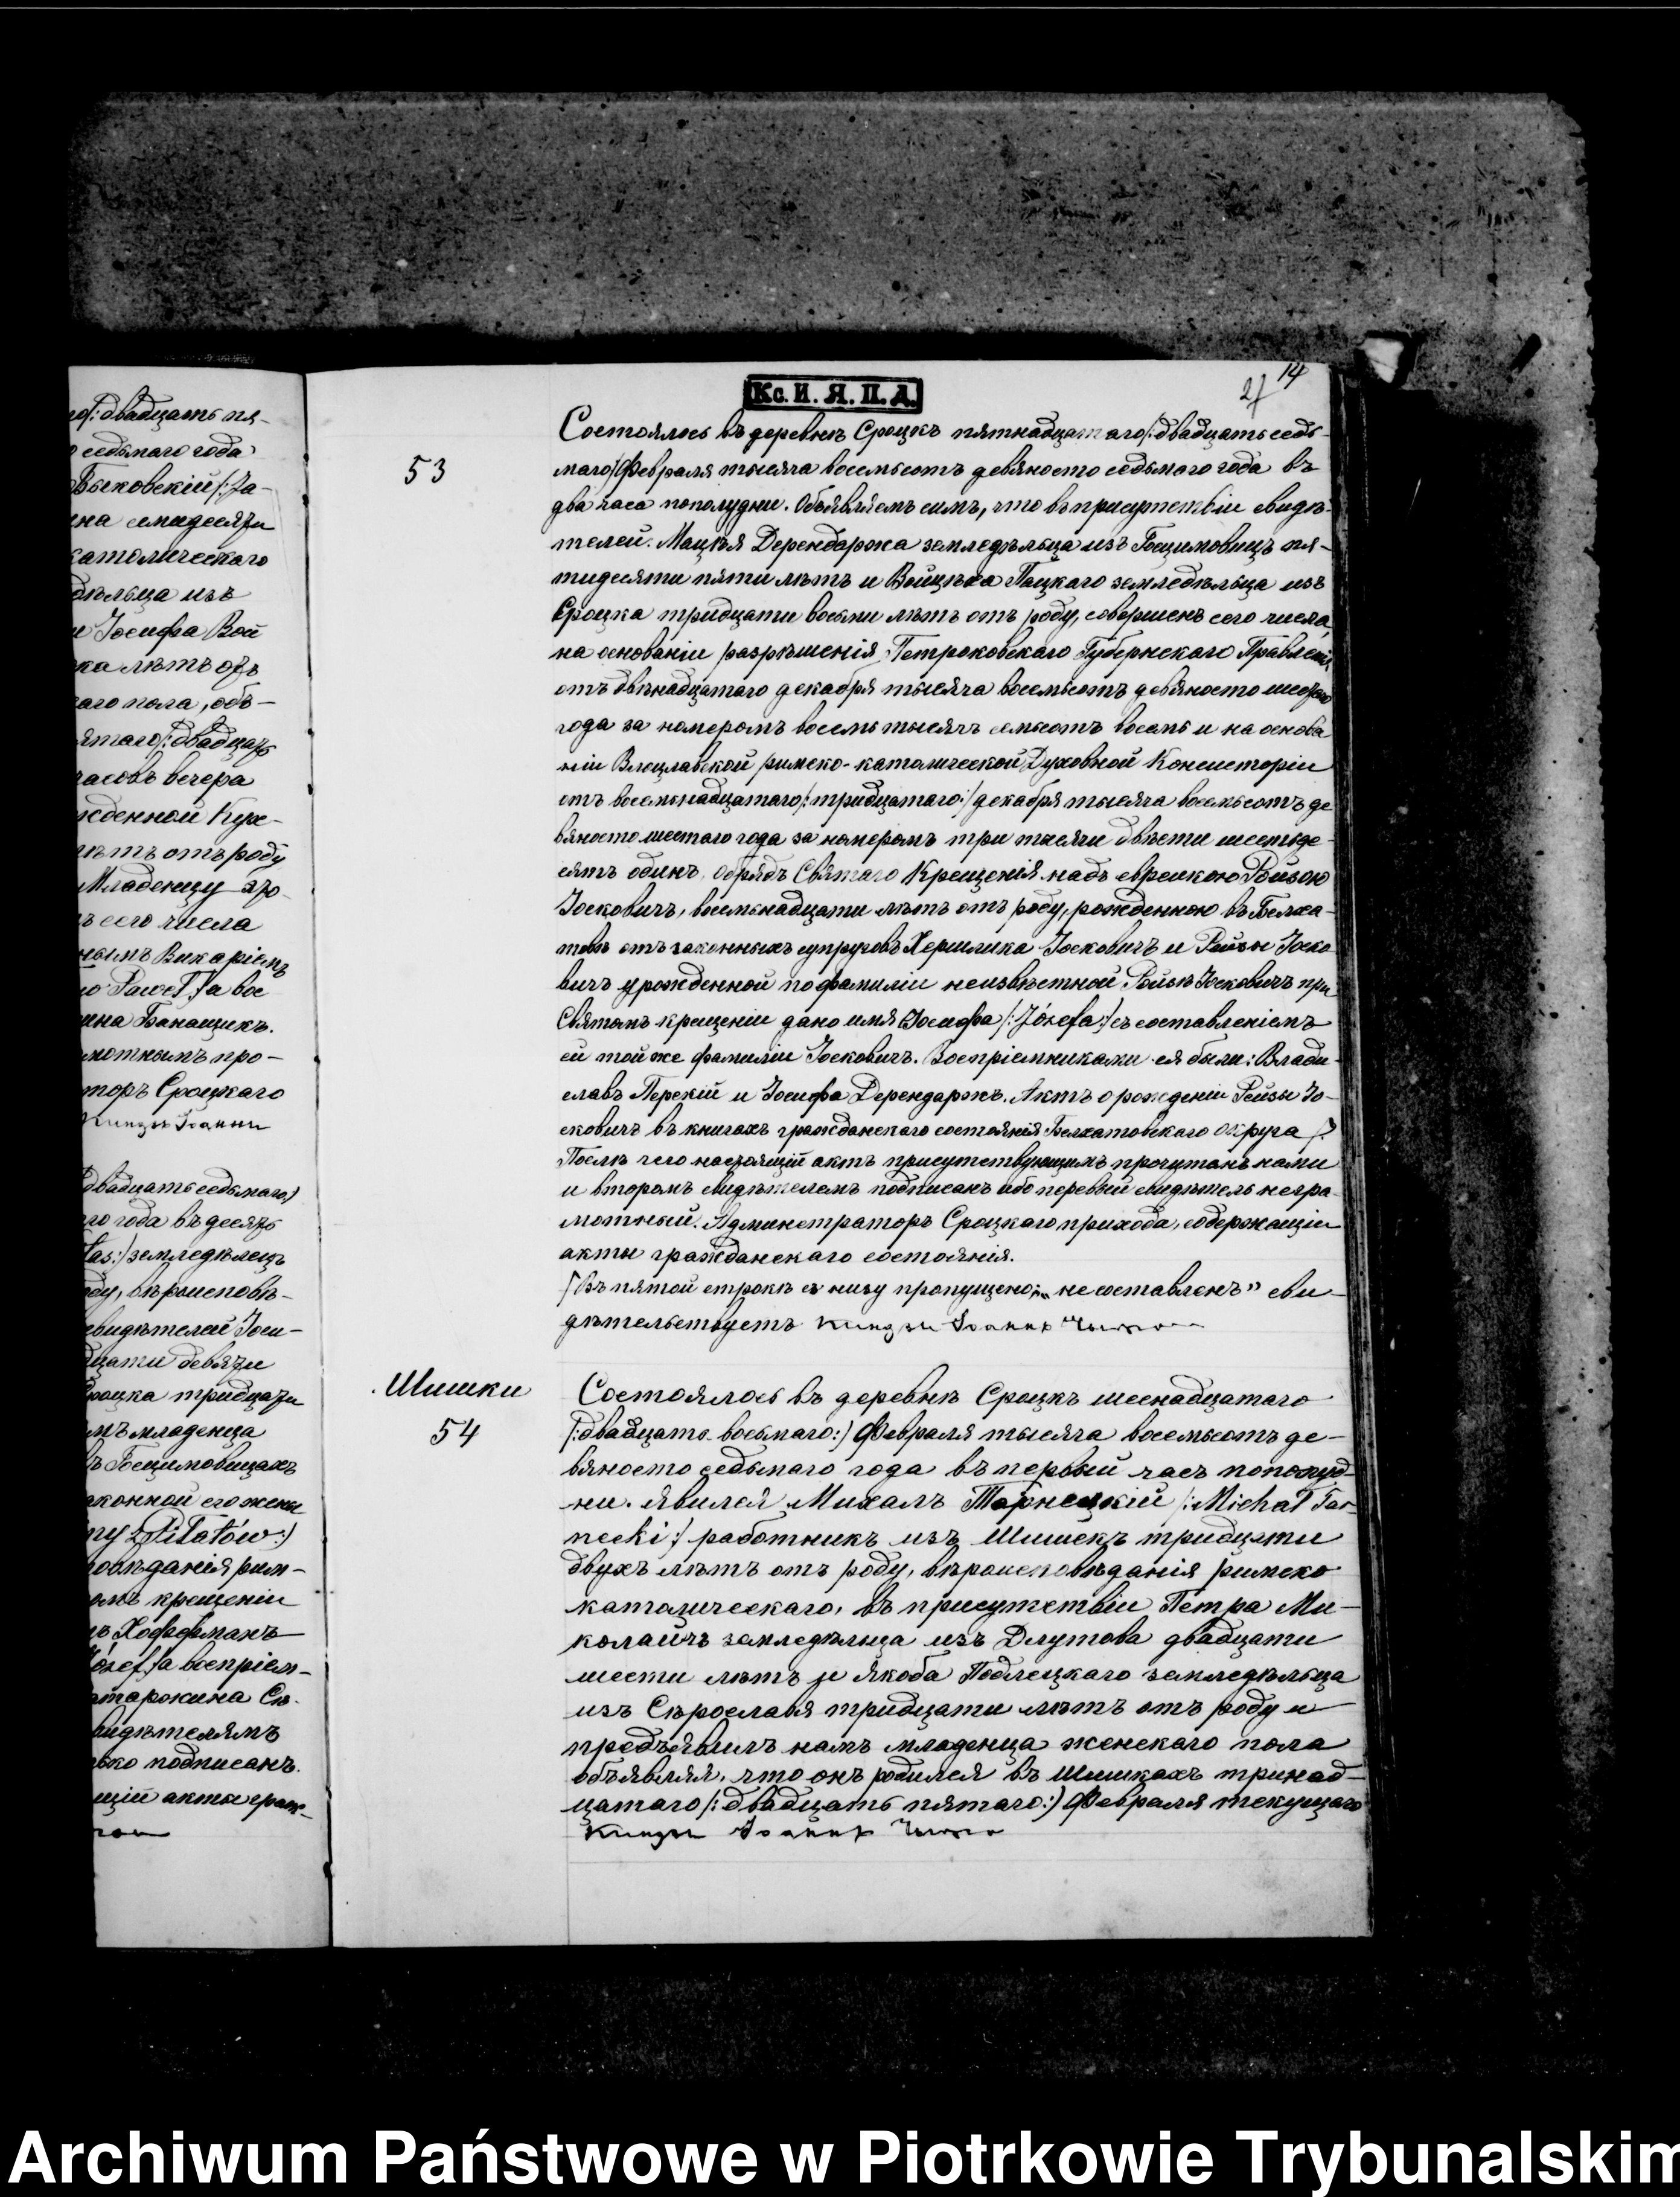 14
27
Кс. И. Я. П. А.
го/: двадцать пя-
седьмаго года
Быковскій /: Ja-
на семидесяти
католическаго
дѣльца изъ
и Іосифа Вой
ка лѣтъ отъ
аго пола, объ-
ятаго /: двадцать
часовъ вечера
жденной Кух-
лѣтъ отъ роду
Младенцу это-
ъ сего числа
нымъ Викаріемъ
Paweł :/ а вос
ина Банащикъ.
мотнымъ про-
торъ Сроцкаго
Ксіндзъ Іоаннъ
двадцать седьмаго)
го года въ десять
łas :/ земледѣлецъ
ду, вѣроисповѣ-
свидѣтелей Іоси-
дцати девяти
Сроцка тридцати
мъ младенца
ъ Госцимовицахъ
аконной его жены
ny z Piłatów :/
овѣданія рим-
омъ крещеніи
ъ Хоффманъ
Józef :/ а воспріем-
видѣтелямъ
ько подписанъ.
щій акты граж-
53
Состоялось въ деревнѣ Сроцкъ пятнадцатаго /: двадцать седь-
маго / Февраля тысяча восемьсотъ девяносто седьмаго года въ
два часа пополудни. Объявляемъ симъ, что въ присутствіи свидѣ-
телей: Мацѣя Дерендаржа земледѣльца изъ Госцимовицъ пя-
тидесяти пяти лѣтъ и Войцѣха Пацкаго земледѣльца изъ
Сроцка тридцати восьми лѣтъ отъ роду, совершенъ сего числа,
на основаніи разрѣшенія Петроковскаго Губернскаго Правленія
отъ двѣнадцатаго декабря тысяча восемьсотъ девяносто шестаго
года за номеромъ восемь тысячъ семьсотъ восемь и на основа
ніи Влоцлавской римско-католической Духовной Консисторіи
отъ восемьнадцатаго /: тридцатаго :/ декабря тысяча восемьсотъ де
вяносто шестаго года за номеромъ три тысячи двѣсти шестьде-
сятъ одинъ, обрядъ Святаго Крещенія надъ еврейкою Ройзою
Іосковичъ, восемьнадцати лѣтъ отъ роду, рожденною въ Белха-
товѣ отъ законныхъ супруговъ Хершлика Іосковичъ и Рейзы Іоско
вичъ урожденной по фамиліи неизвѣстной. Ройзѣ Іосковичъ при
Святомъ крещеніи дано имя Іосифа /: Józefa :/ съ составленіемъ
ей той же фамиліи Іосковичъ. Воспріемниками ея были: Влади-
славъ Перскій и Іосифа Дерендаржъ. Актъ о рожденіи Рейзы Іо-
сковичъ въ книгахъ гражданскаго состоянія Белхатовскаго округа /?
Послѣ чего настоящій актъ присутствующимъ прочитанъ нами
и вторымъ свидѣтелемъ подписанъ ибо первый свидѣтель негра-
мотный. Администраторъ Сроцкаго прихода, содержащій
акты гражданскаго состоянія.
/ Въ пятой строкѣ съ низу пропущено: „не составленъ" сви-
дѣтельствуетъ Ксіндзъ Іоаннъ
Шишки
54
Состоялось въ деревнѣ Сроцкъ шеснадцатаго
/: двадцать восьмаго :/ Февраля тысяча восемьсотъ де-
вяносто седьмаго года въ первый часъ пополуд-
ни. Явился Михалъ Тарнецкій /: Michał Tar-
necki :/ работникъ изъ Шишекъ тридцати
двухъ лѣтъ отъ роду, вѣроисповѣданія римско
католическаго, въ присутствіи Петра Ми-
колайчъ земледѣльца изъ Длутова двадцати
шести лѣтъ и Якоба Подлецкаго земледѣльца
изъ Сѣрославя тридцати лѣтъ отъ роду и
предъявилъ намъ младенца женскаго пола
объявляя, что онъ родился въ Шишкахъ тринад-
цатаго /: двадцать пятаго :/ Февраля текущаго
Ксіндзъ Іоаннъ
Archiwum Państwowe w Piotrkowie Trybunalskim